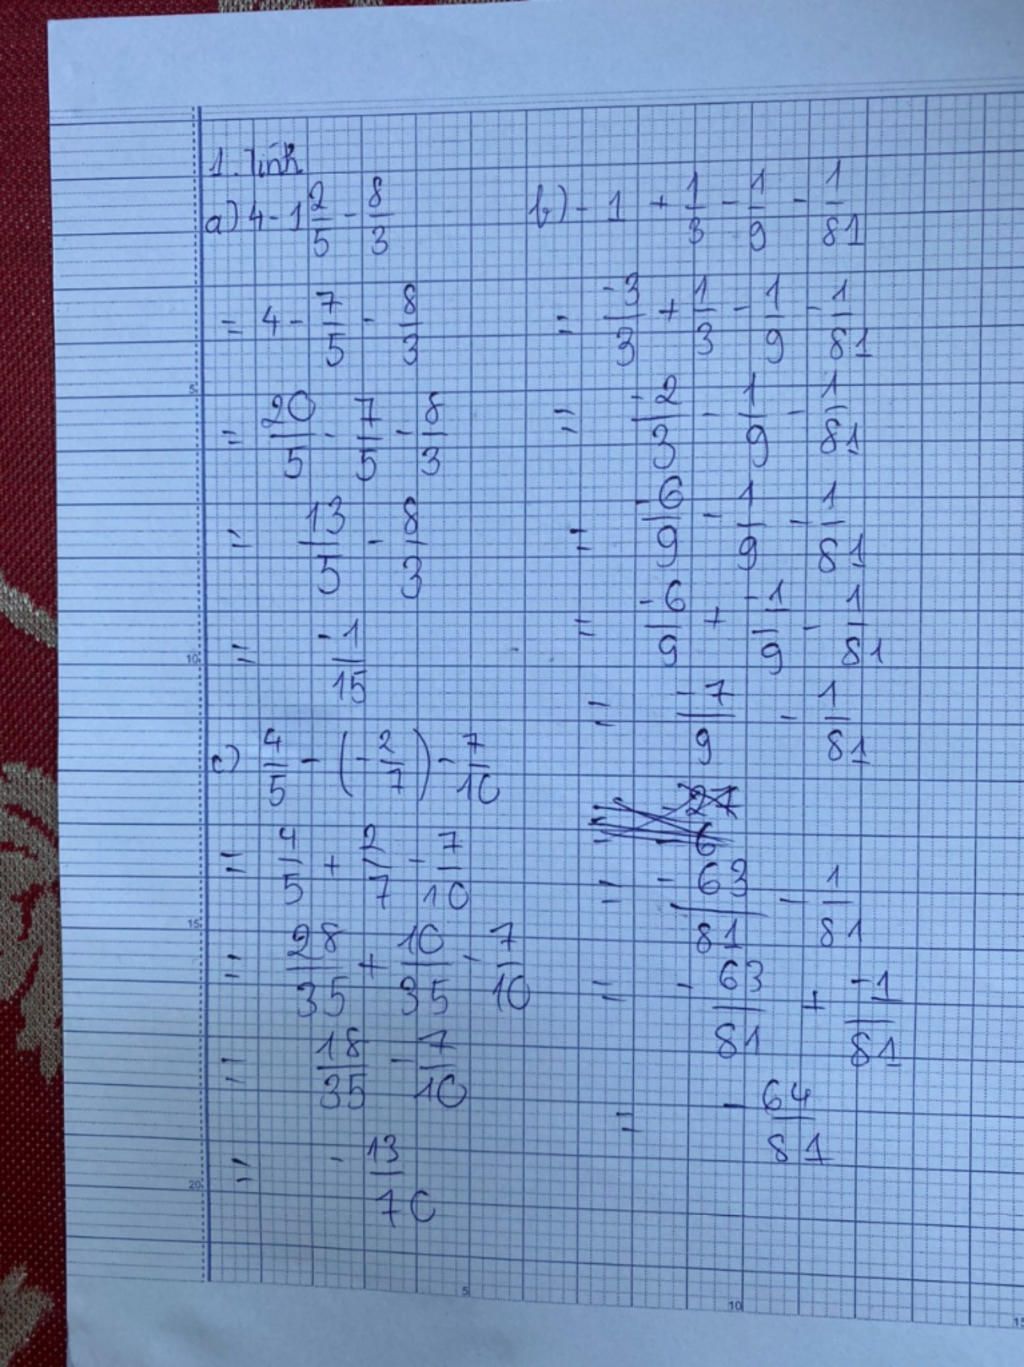 1. Tính
a) 4 - 1 2/5 - 8/3
= 4 - 7/5 - 8/3
= 20/5 - 7/5 - 8/3
= 13/5 - 8/3
= -1/15
c) 4/5 - (-2/7) - 7/10
= 4/5 + 2/7 - 7/10
= 28/35 + 10/35 - 7/10
= 18/35 - 7/10
= -13/70
b) -1 + 1/3 - 1/9 - 1/81
= -3/3 + 1/3 - 1/9 - 1/81
= -2/3 - 1/9 - 1/81
= -6/9 - 1/9 - 1/81
= -6/9 + -1/9 - 1/81
= -7/9 - 1/81
= -63/81 - 1/81
= -63/81 + -1/81
= -64/81
5
10
15
20
5
10
15